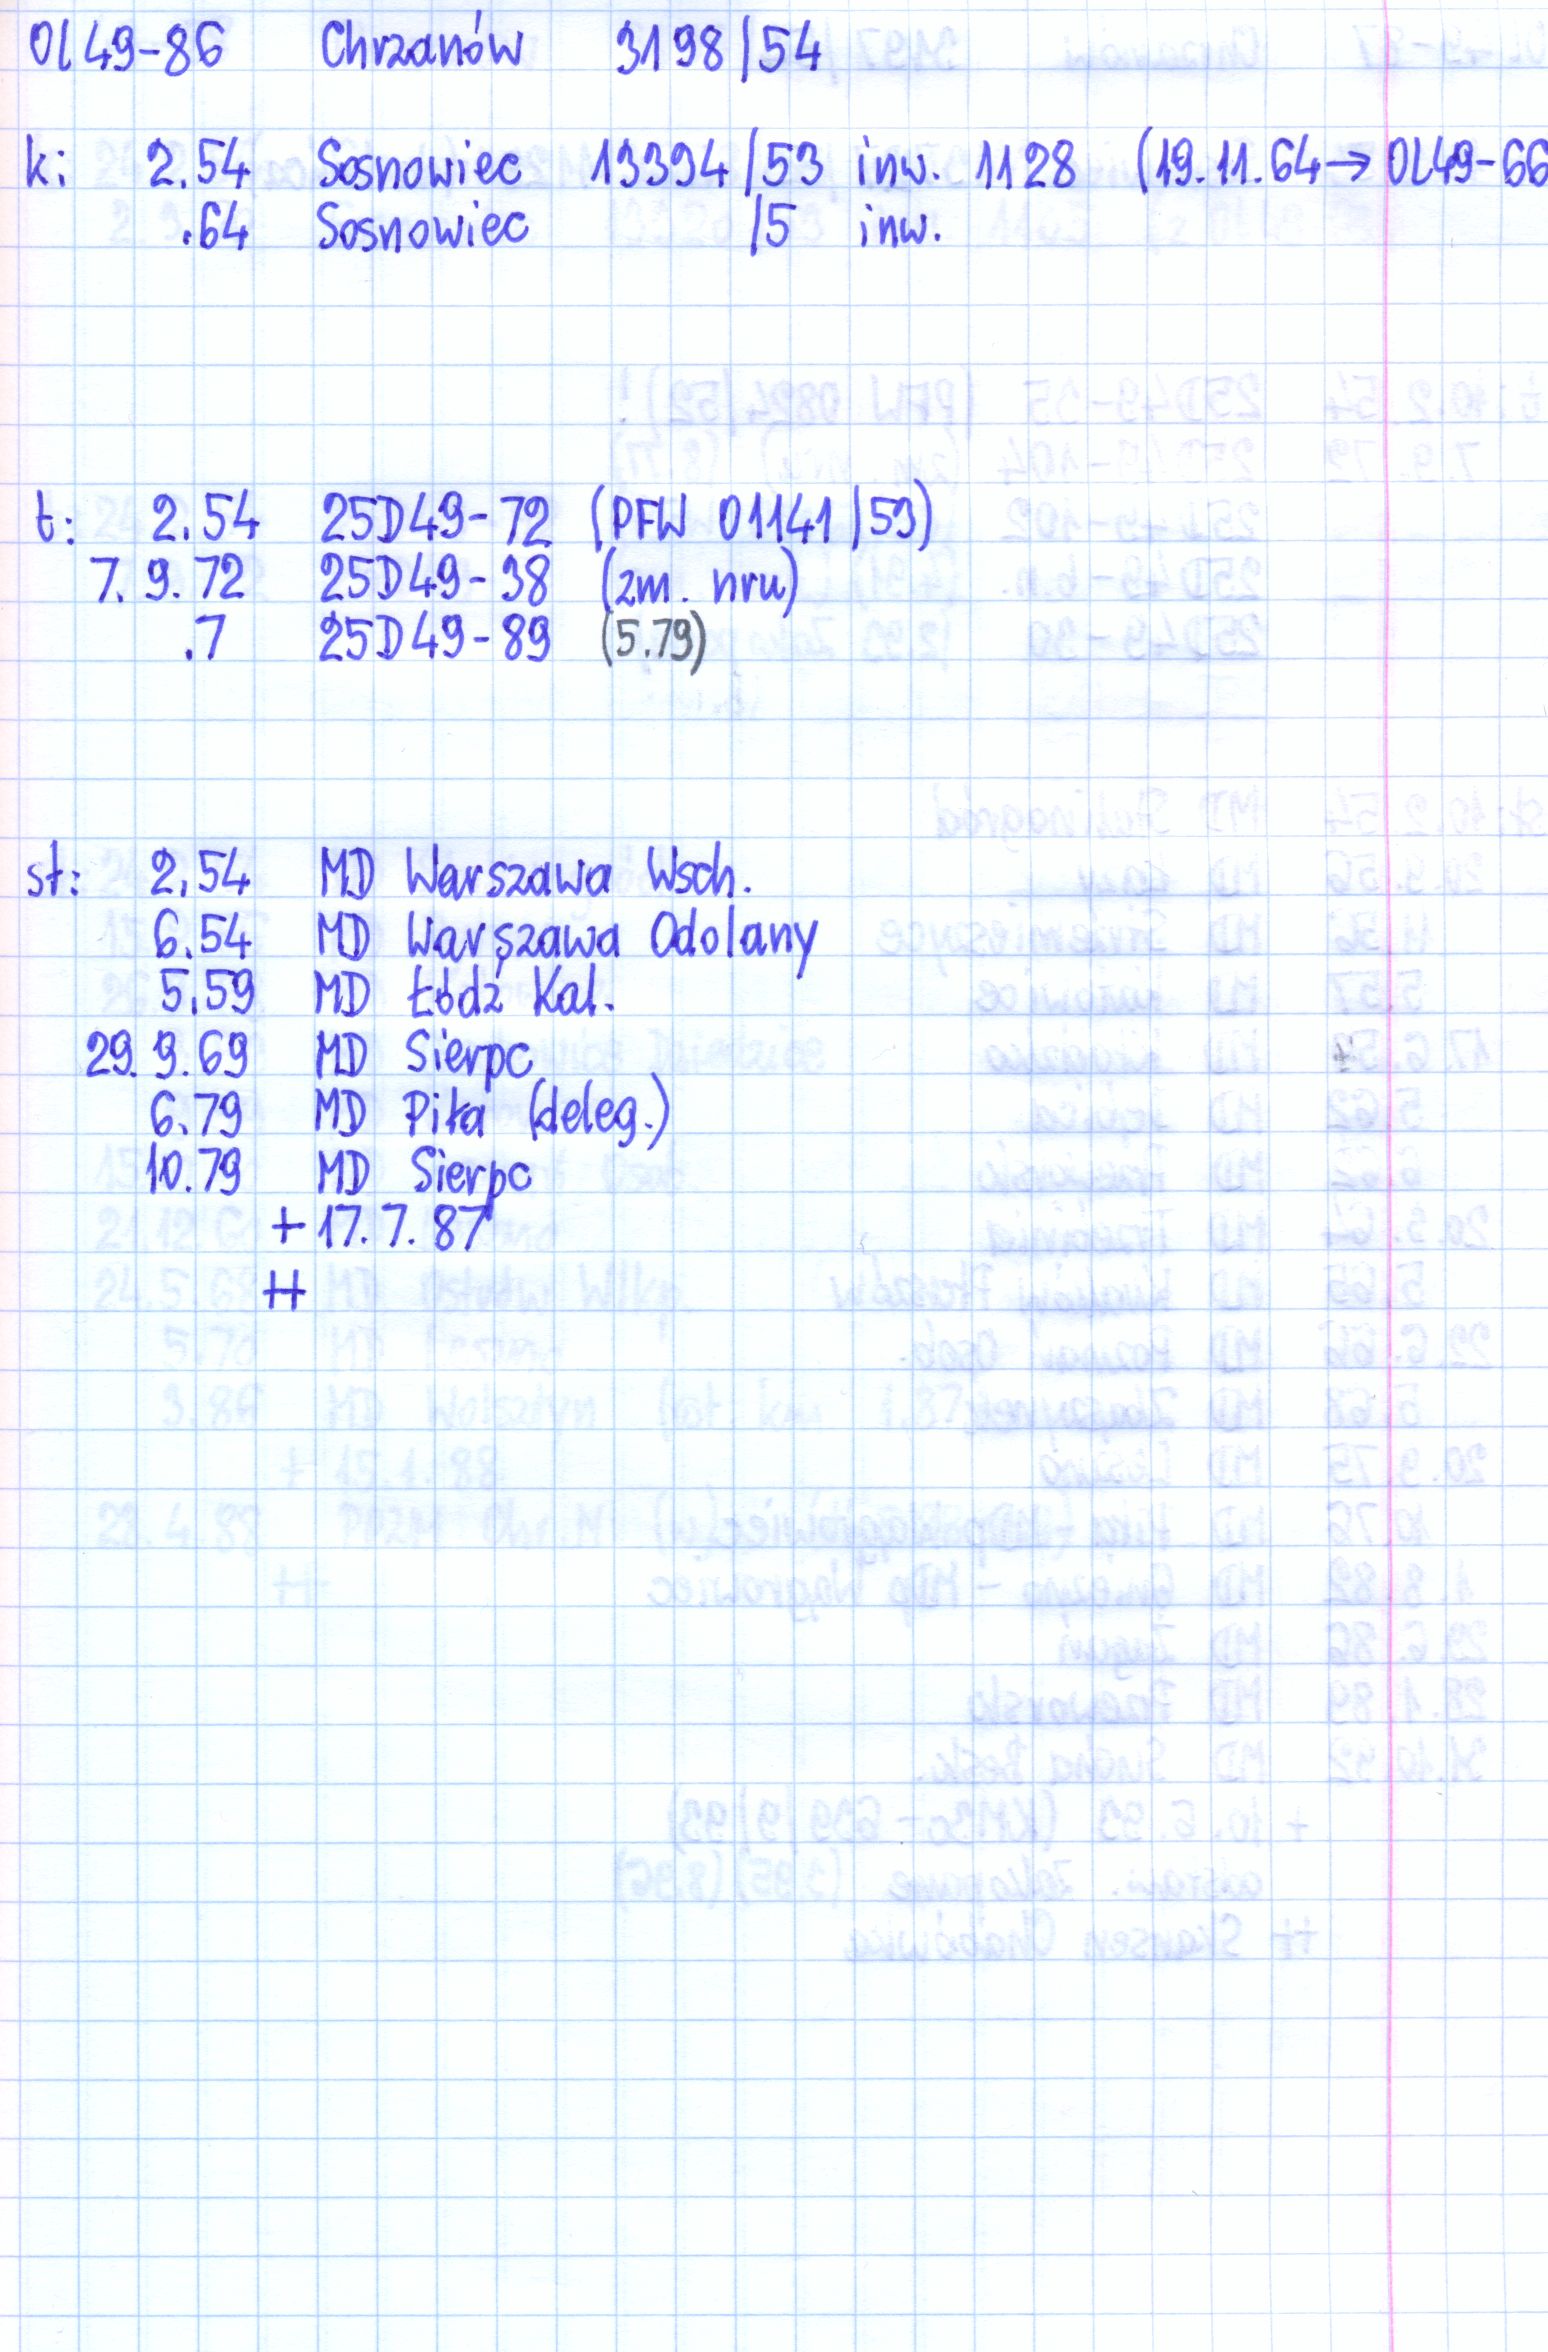 Ol49-86 Chrzanów 3198/54
k: 2.54 Sosnowiec 13394/53 inw. 1128 (19.11.64→Ol49-66
.64 Sosnowiec /5 inw.
t: 2.54 25D49-72 (PFW 01141/53)
7.9.72 25D49-38 (zm. nru)
.7 25D49-89 (5.79)
st: 2.54 MD Warszawa Wsch.
6.54 MD Warszawa Odolany
5.59 MD Łódź Kal.
29.9.69 MD Sierpc
6.79 MD Piła (deleg.)
10.79 MD Sierpc
+ 17.7.87
++